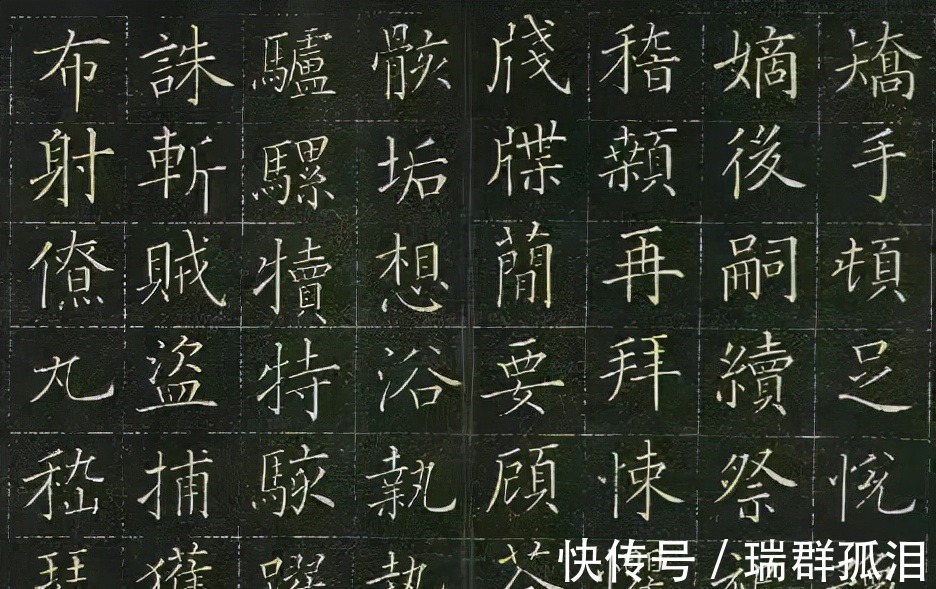 矯手頓足悅
嫡後嗣續祭
稽顙再拜悚
牋牒簡要顧
骸垢想浴執
驢騾犢特駭
誅斬賊盜捕
布射僚丸嵇
快传号 / 瑞群孤泪